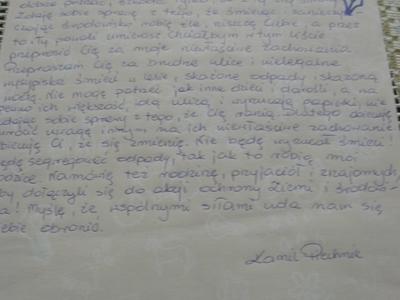 zdaję sobie sprawę z tego, że śmiecąc i zanieczy-
czając środowisko robię źle, niszczę Ciebie, a przez
to Ty powoli umierasz. Chciałbym w tym liście
przeprosić Cię za moje niewłaściwe zachowania.
Przepraszam Cię za brudne ulice i nielegalne
wysypiska śmieci w lesie, skażone odpady i skażoną
wodę. Nie mogę patrzeć jak inne dzieci i dorośli, a na
ich większość, idą ulicą, i wyrzucają papierki, nie
zdając sobie sprawy z tego, że Cię ranią. Dlatego
zwrócić uwagę innym na ich niewłaściwe zachowanie
obiecuję Ci, że się zmienię. Nie będę wyrzucał śmieci!
będę segregować odpady, tak jak to robią moi
rodzice. Namówię też rodzinę, przyjaciół i znajomych,
by dołączyli się do akcji ochrony Ziemi i środo-
a! Myślę, że wspólnymi siłami uda nam się
ciebie obronić.
Kamil